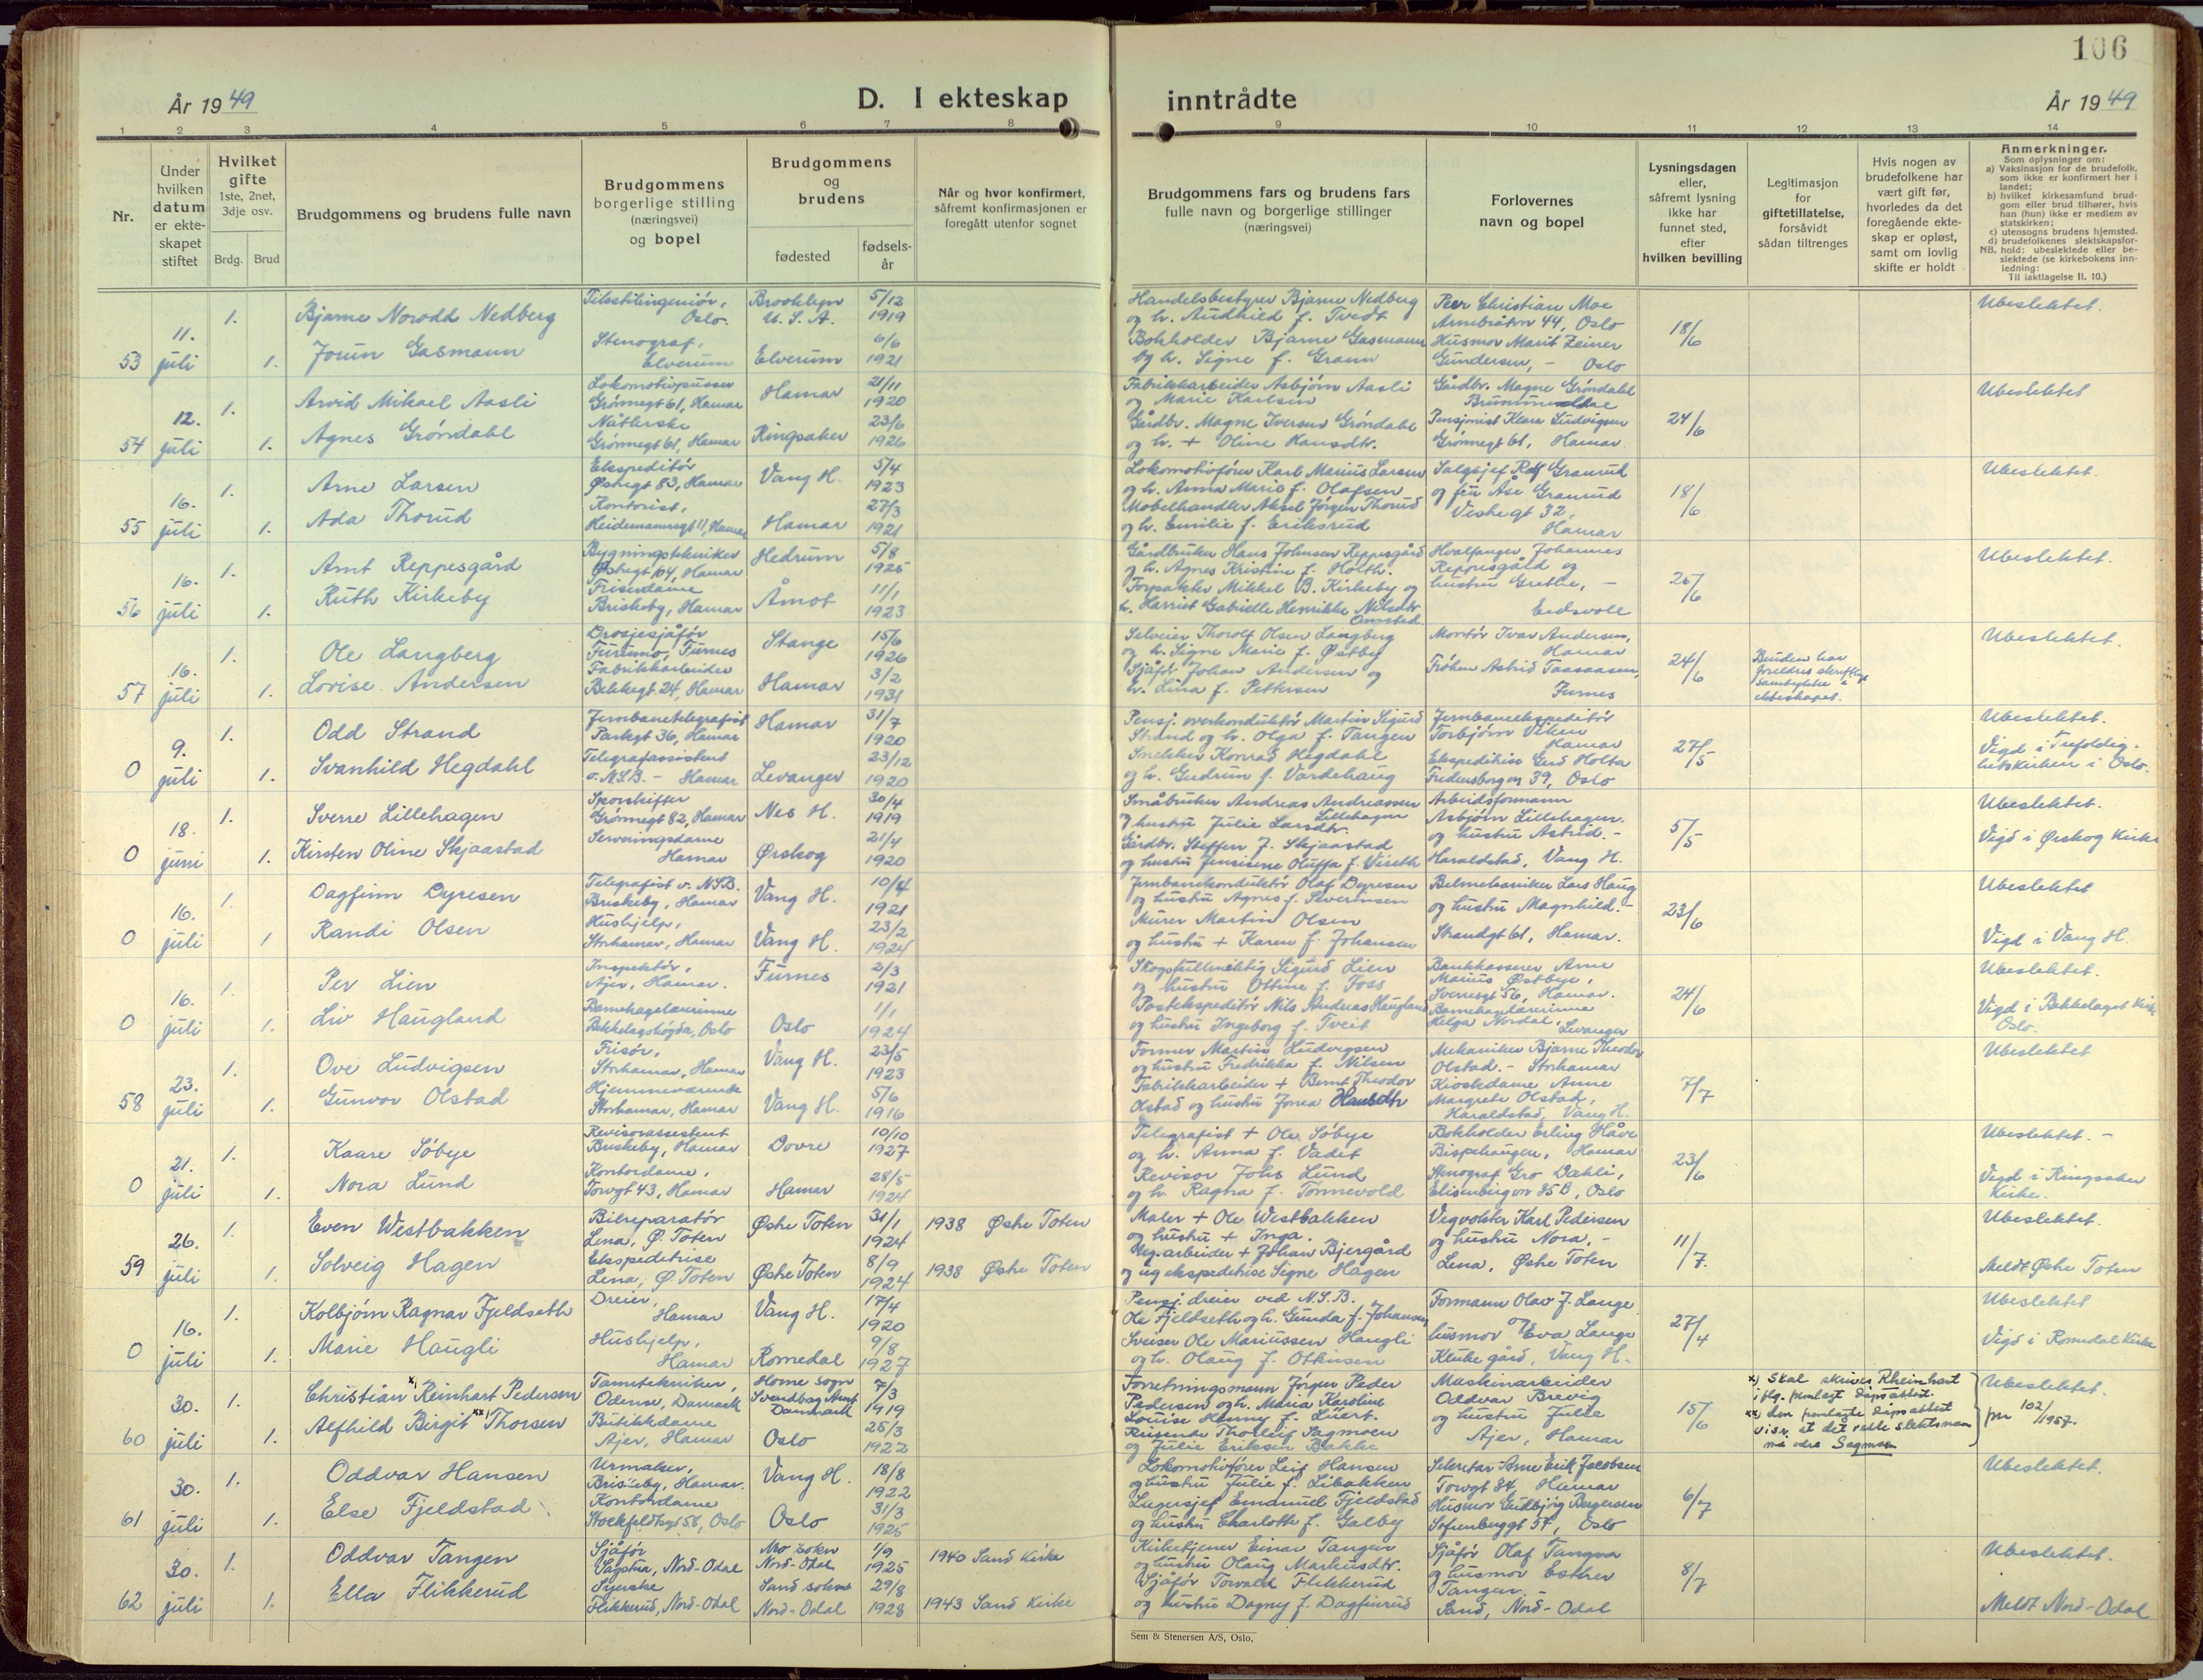 106
År 1949
D. I ekteskap inntrådte
År 1949
1 2 3 4 5 6 7 8 9 10 11 12 13 14
Nr.
Under hvilken datum er ekteskapet stiftet
Hvilket gifte 1ste, 2net, 3dje osv.
Brdg. Brud
Brudgommens og brudens fulle navn
Brudgommens borgerlige stilling (næringsvei) og bopel
Brudgommens og brudens
fødested
fødsels-år
Når og hvor konfirmert, såfremt konfirmasjonen er foregått utenfor sognet
Brudgommens fars og brudens fars fulle navn og borgerlige stillinger (næringsvei)
Forlovernes navn og bopel
Lysningsdagen eller, såfremt lysning ikke har funnet sted, efter hvilken bevilling
Legitimasjon for giftetillatelse, forsåvidt sådan tiltrenges
Hvis nogen av brudefolkene har vært gift før, hvorledes da det foregående ekteskap er opløst, samt om lovlig skifte er holdt
Anmerkninger.
Som oplysninger om:
a) Vaksinasjon for de brudefolk, som ikke er konfirmert her i landet;
b) hvilket kirkesamfund brudgom eller brud tilhører, hvis han (hun) ikke er medlem av statskirken;
c) utensogns brudens hjemsted.
d) brudefolkenes slektskapsforhold: ubeslektede eller beslektede (se kirkebokens innledning:
NB.
Til iakttagelse II. 10.)
53 11. juli 1. Bjarne Norodd Nedberg Tekstilingeniør, Oslo. Brooklyn U.S.A. 5/12 1919
1. Jorun Gasmann Stenograf, Elverum Elverum 6/6 1921
Handelsbestyrer Bjarne Nedberg og h. Audhild f. Tvedt
Bokholder Bjarne Gasmann og h. Signe f. Graun
Peer Christian Moe Arnebråtvn 44, Oslo
Husmor Marit Zeiner Gundersen, - Oslo
18/6 Ubeslektet.
54 12. juli 1. Arvid Mikael Aasli Lokomotivpusser Grønnegt 61, Hamar Hamar 21/11 1920
1. Agnes Grøndahl Nåtlerske Grønnegt 61, Hamar Ringsaker 23/6 1926
Fabrikkarbeider Asbjørn Aasli og Marie Karlsen
Gårdbr. Magne Iversen Grøndahl og h. + Oline Hansdtr.
Gårdbr. Magne Grøndahl Brumunddal
Pensjonist Klara Ludvigsen Grønnegt 61, Hamar.
24/6 Ubeslektet
55 16. juli 1. Arne Larsen Ekspeditør Østregt 83, Hamar Vang H. 5/4 1923
1. Ada Thorud Kontorist, Heidemannsgt 11, Hamar Hamar 27/3 1921
Lokomotivfører Karl Marius Larsen og h. Anna Marie f. Olafsen
Møbelhandler Aksel Jørgen Thorud og h. Emilie f. Eriksrud
Salgsjef Rolf Granrud og fru Åse Granrud Vestregt 32, Hamar
18/6 Ubeslektet.
56 16. juli 1. Arnt Reppesgård Bygningstekniker Østregt 104, Hamar Hedrum 5/8 1925
1. Ruth Kirkeby Friserdame Briskeby, Hamar Åmot 11/1 1923
Gårdbruker Hans Johnsen Reppesgård og h. Agnes Kristine f. Holth.
Forpakter Mikkel B. Kirkeby og h. Harriet Gabrielle Henrikke Nilsdtr Onustad
Hvalfanger Johannes Reppesgård og hustru Grethe, - Eidsvoll
26/6 Ubeslektet.
57 16. juli 1. Ole Langberg Drosjesjåfør Furumo, Furnes Stange 15/6 1926
1. Lovise Andersen Fabrikkarbeider Bekkegt 24, Hamar Hamar 3/2 1931
Selveier Thorolf Olsen Langberg og h. Signe Marie f. Østby
Sjåfør Johan Andersen og h. Lina f. Pettersen
Montør Ivar Andersen, Hamar
Frøken Astrid Taasaasen, Furnes
24/6
Bruden har foreldres skriftlige samtykke i ekteskapet.
Ubeslektet.
0 9. juli 1. Odd Strand Jernbanetelegrafist Parkgt 36, Hamar Hamar 31/7 1920
1. Svanhild Hegdahl Telegrafassistent v. N.S.B. - Hamar Levanger 23/12 1920
Pensj. overkonduktør Martin Sigurd Strand og h. Olga f. Tangen
Snekker Konrad Hegdahl og h. Gudrun f. Vardehaug
Jernbaneekspeditør Torbjørn Viken Hamar
Ekspeditrise Gerd Holta Fredensborgvn 39, Oslo
27/5 Ubeslektet.
Vigd i Trefoldighetskirken i Oslo.
0 18. juni 1. Sverre Lillehagen Sporskifter Grønnegt 82, Hamar Nes H. 30/4 1919
1. Kirsten Oline Skjaastad Serveringsdame Hamar Ørskog 21/4 1920
Småbruker Andreas Andreassen Lillehagen og hustru Julie Larsdtr.
Gårdbr. Steffen J. Skjaastad og hustru Jensine Oluffa f. Viseth
Arbeidsformann Asbjørn Lillehagen og hustru Astrid. - Haraldstad, Vang H.
5/5 Ubeslektet.
Vigd i Ørskog Kirke
0 16. juli 1. Dagfinn Dyresen Telegrafist v. N.S.B. Briskeby, Hamar Vang H. 10/4 1921
1 Randi Olsen Hushjelp, Storhamar, Hamar Vang H. 23/2 1924
Jernbanekonduktør Olaf Dyresen og hustru Agnes f. Severinsen
Murer Martin Olsen og hustru + Karen f. Johansen
Bilmekaniker Lars Haug og hustru Magnhild. - Strandgt 61, Hamar.
23/6 Ubeslektet
Vigd i Vang H.
0 16. juli 1. Per Lien Inspektør, Ajer, Hamar. Furnes 2/3 1921
1. Liv Haugland Barnehagelærerinne Bekkelagshøgda, Oslo Oslo 1/1 1924
Skogsfullmektig Sigurd Lien og hustru Ottine f. Foss
Postekspeditør Nils Andreas Haugland og hustru Ingeborg f. Tveit
Bankkasserer Arne Marius Østbye, Sverresgt 56, Hamar.
Barnehagelærerinne Helga Nordal, Levanger
24/6 Ubeslektet.
Vigd i Bekkelaget Kirke Oslo.
58 23. juli 1. Ove Ludvigsen Frisør, Storhamar, Hamar Vang H. 23/5 1923
1. Gunvor Olstad Hjemmeværende Storhamar, Hamar Vang H. 5/6 1916
Former Martin Ludvigsen og hustru Fredrikka f. Nilsen
Fabrikkarbeider + Bernt Theodor Olstad og hustru Jonea Hansdtr
Mekaniker Bjarne Theodor Olstad. - Storhamar
Kioskdame Anne Margrete Olstad, Haraldstad, Vang H.
7/7 Ubeslektet
0 21. juli 1. Kaare Søbye Revisorassistent Briskeby, Hamar Dovre 10/10 1927
1. Nora Lund Kontordame, Torvgt 43, Hamar Hamar 28/5 1924
Telegrafist + Ole Søbye og h. Anna f. Vadet
Revisor Johs Lund og h. Ragna f. Tonnevold
Bokholder Erling Håve Bispehaugen, Hamar
Stenograf Gro Dahli, Elisenbergvn 35B, Oslo
23/6 Ubeslektet. -
Vigd i Ringsaker Kirke.
59 26. juli 1. Even Westbakken Bilreparatør Lena, Ø. Toten Østre Toten 31/1 1924 1938 Østre Toten
1. Solveig Hagen Ekspeditrise Lena, Ø. Toten Østre Toten 8/9 1924 1938 Østre Toten
Maler + Ole Westbakken og hustru + Inga.
Veg.arbeider + Johan Bjergård og ug ekspeditrise Signe Hagen
Vegvokter Karl Pedersen og hustru Nora, - Lena, Østre Toten
11/7 Ubeslektet.
Meldt Østre Toten
0 16. juli 1. Kolbjørn Ragnar Fjeldseth Dreier, Hamar Vang H. 17/4 1920
1. Marie Haugli Hushjelp, Hamar Romedal 9/8 1927
Pensj. dreier ved N.S.B. Ole Fjeldseth og h. Gunda f. Johansen
Sveiser Ole Mariussen Haugli og h. Olaug f. Ottinsen
Formann Olav J. Lange og husmor Eva Lange Kluke gård, Vang H.
27/4 Ubeslektet
Vigd i Romedal Kirke
60 30. juli 1. Christian x) Reinhart Pedersen Tanntekniker, Odense, Danmark Horne sogn Svendborg Amt Danmark 7/3 1919
1. Alfhild Birgit xx) Thorsen Butikkdame Ajer, Hamar Oslo 25/3 1922
Forretningsmann Jørgen Peder Pedersen og h. Maria Karoline Louise Henny f. Luert.
Reisende Thorleif Sagmoen og Julie Eriksen Bakke
Maskinarbeider Oddvar Brevig og hustru Julie Ajer, Hamar
15/6
x) Skal skrives Rheinhart iflg. fremlagt dåpsattest.
xx) den fremlagte dåpsattest viser at det rette slektsnavn må være Sagmoen
Ubeslektet.
102/1957.
61 30. juli 1. Oddvar Hansen Urmaker, Briskeby, Hamar. Vang H. 18/8 1922
1. Else Fjeldstad Kontordame Stockfeldtsgt 56, Oslo Oslo 31/3 1925
Lokomotivfører Leif Hansen og hustru Julie f. Libakken
Lagersjef Emanuel Fjeldstad og hustru Charlotte f. Galby
Sekretær Arne Erik Jacobsen Torvgt 84, Hamar
Husmor Gudbjørg Børgersen Sofienberggt 57, Oslo
6/7 Ubeslektet.
62 30. juli 1. Oddvar Tangen Sjåfør Sagstua, Nord-Odal Mo sokn Nord-Odal 1/9 1925 1940 Sand Kirke
1. Ella Flikkerud Syerske Flikkerud, Nord-Odal Sand sokn Nord-Odal 29/8 1928 1943 Sand Kirke
Kirketjener Einar Tangen og hustru Olaug Markusdtr.
Sjåfør Torvald Flikkerud og hustru Dagny f. Dagfinrud
Sjåfør Olaf Tangen og husmor Esther Tangen. - Sand, Nord-Odal
8/7 Ubeslektet.
Meldt Nord-Odal
Sem & Stenersen A/S, Oslo.